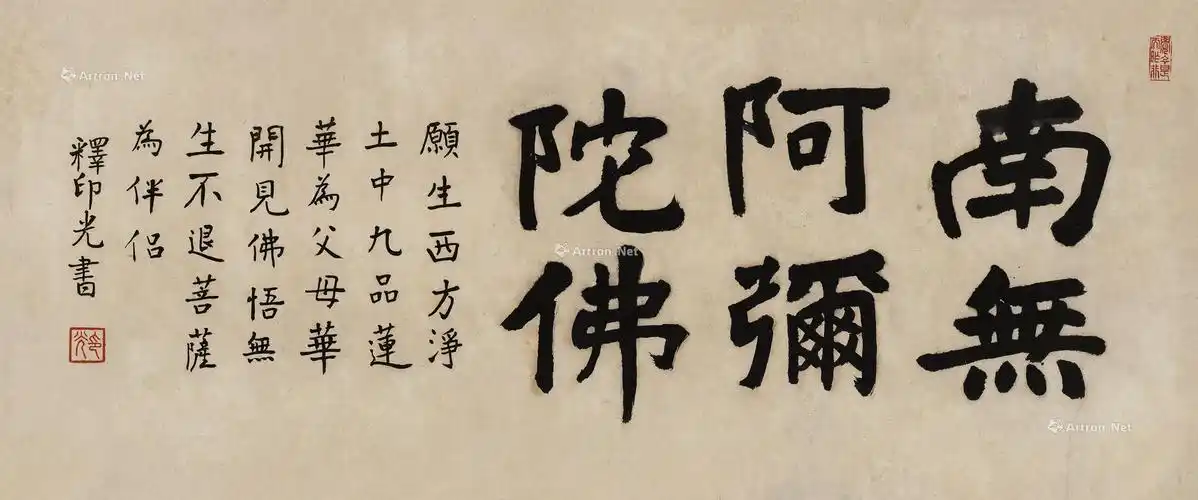 南無
阿彌
陀佛
願生西方淨
土中九品蓮
華為父母華
開見佛悟無
生不退菩薩
為伴侶
釋印光書
Artron.Net
Artron.Net
Artron.Net